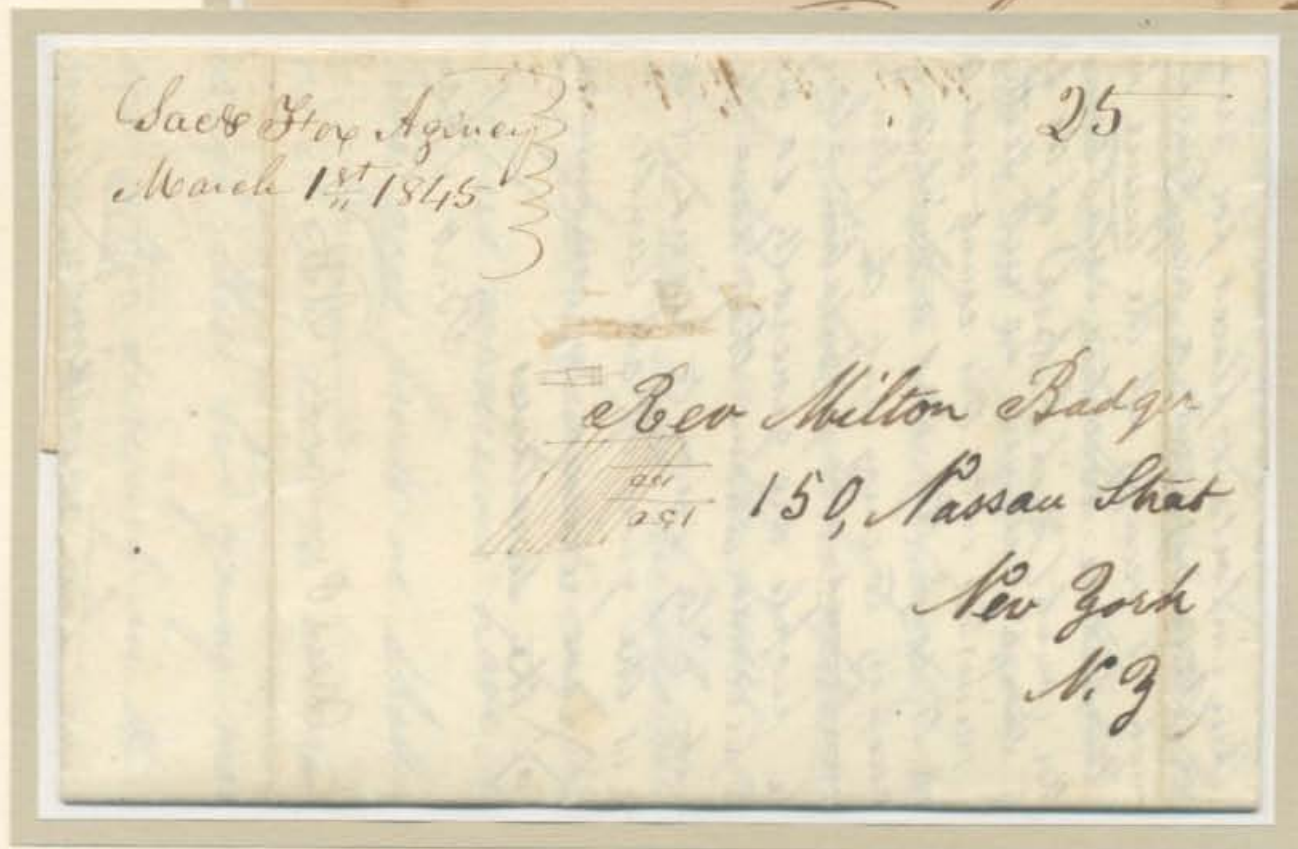 Sac & Fox Agency
March 1st 1845
25
Rev Milton Badger
150, Nassau Street
New York
N. Y